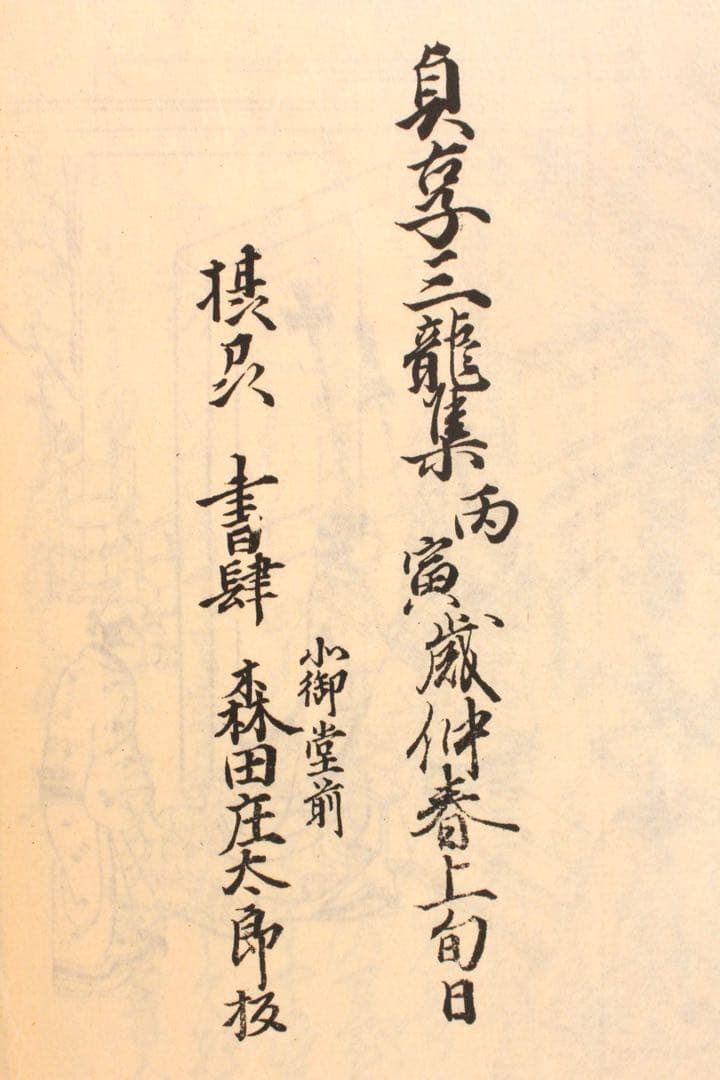 貞享三龍集丙寅歳仲春上旬日
北御堂前
書肆 森田庄太郎板